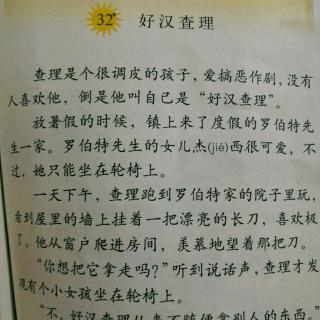 32* 好汉查理
查理是个很调皮的孩子，爱搞恶作剧，没有
人喜欢他，倒是他叫自己是“好汉查理”。
放暑假的时候，镇上来了度假的罗伯特先
生一家。罗伯特先生的女儿杰(jié)西很可爱，不
过，她只能坐在轮椅上。
一天下午，查理跑到罗伯特家的院子里玩，
看到屋里的墙上挂着一把漂亮的长刀，喜欢极
了。他从窗户爬进房间，羡慕地望着那把刀。
“你想把它拿走吗？”听到说话声，查理才发
现有个小女孩坐在轮椅上。
“不，好汉查理从来不随便拿别人的东西。”